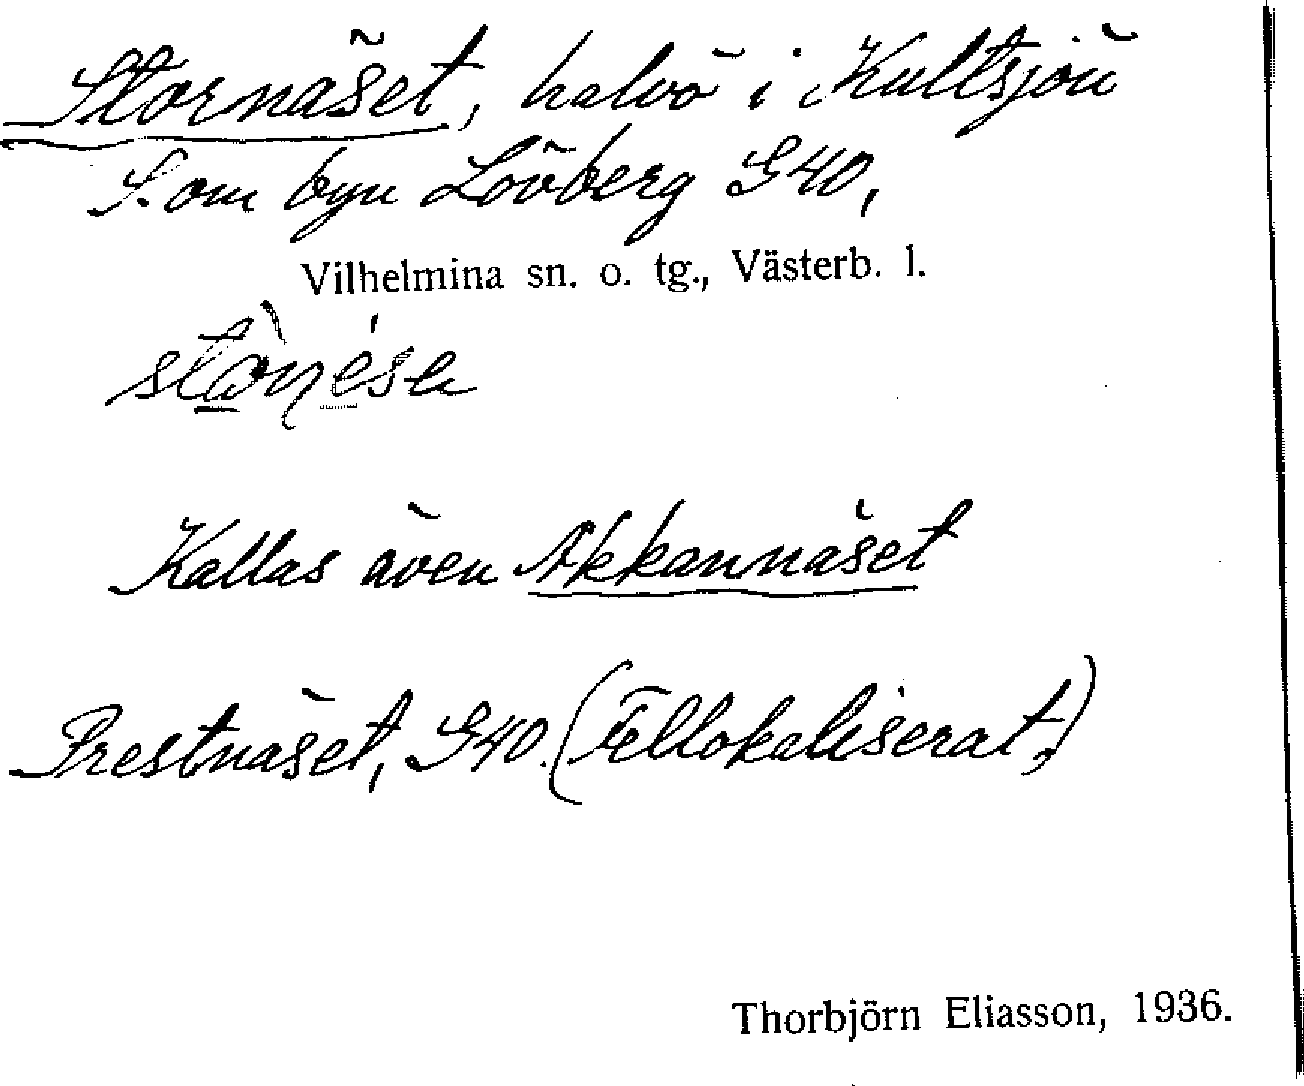 Stornäset, halvö i Kultsjön
S. om byn Lövberg G40,
Vilhelmina sn. o. tg., Västerb. l.
Kallas även Akkannäset
Prestnäset, G40. (Fellokaliserat.)
Thorbjörn Eliasson, 1936.